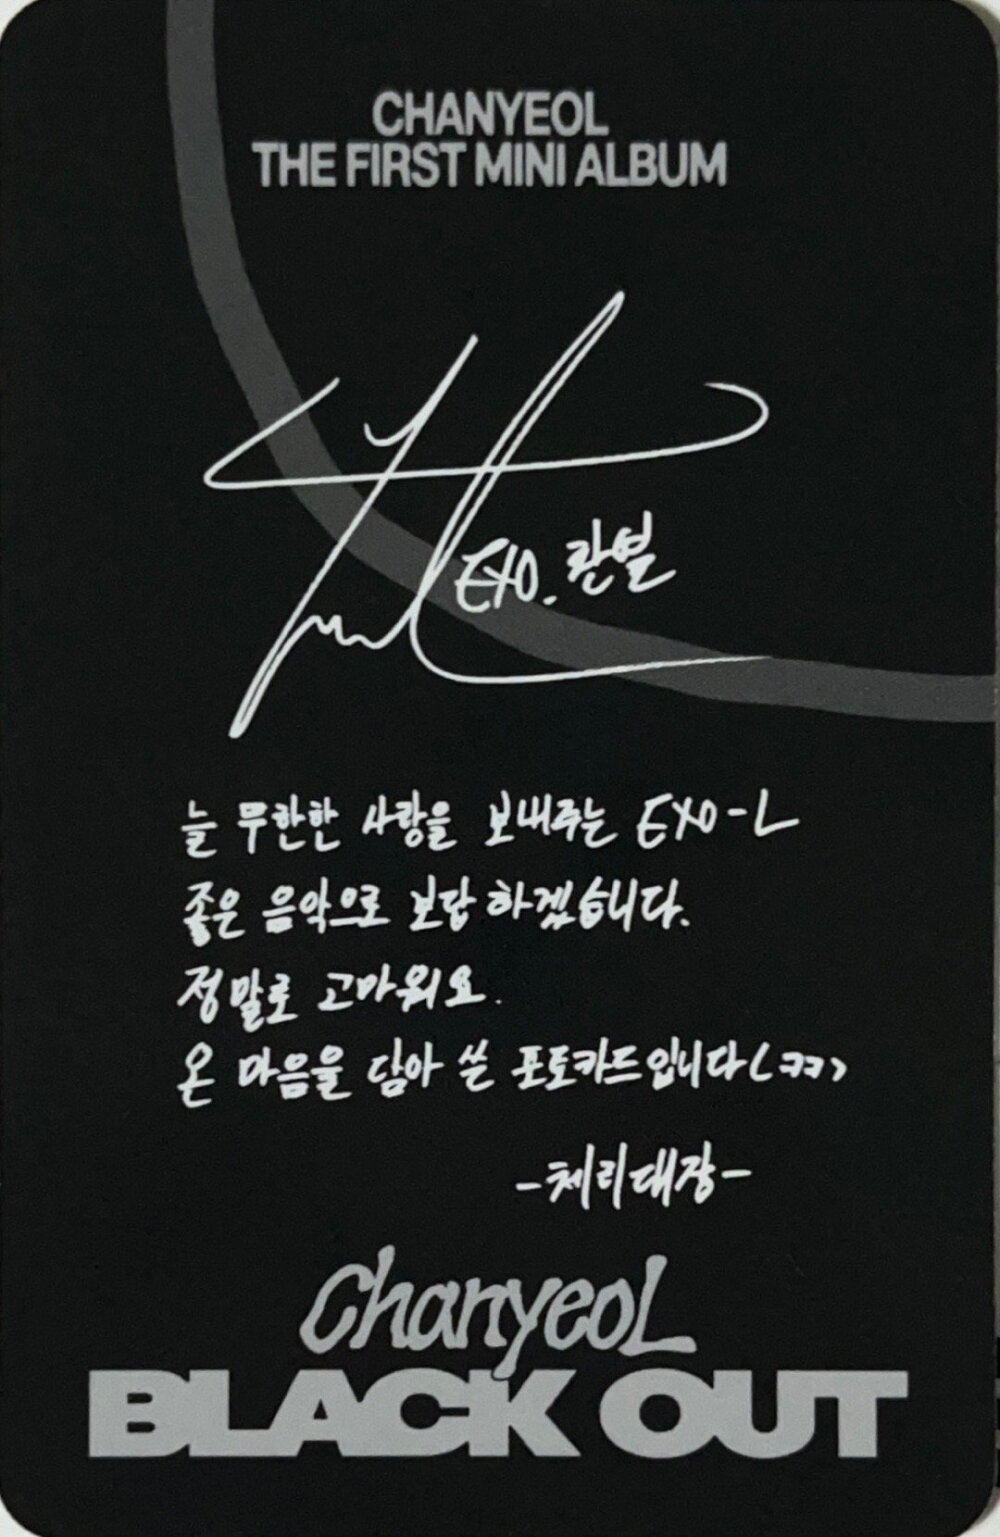 CHANYEOL
THE FIRST MINI ALBUM
EXO. 찬열
늘 무한한 사랑을 보내주는 EXO-L
좋은 음악으로 보답 하겠습니다.
정말로 고마워요.
온 마음을 담아 쓴 포토카드입니다(ㅋㅋ)
-체리대장-
ChanyeoL
BLACK OUT